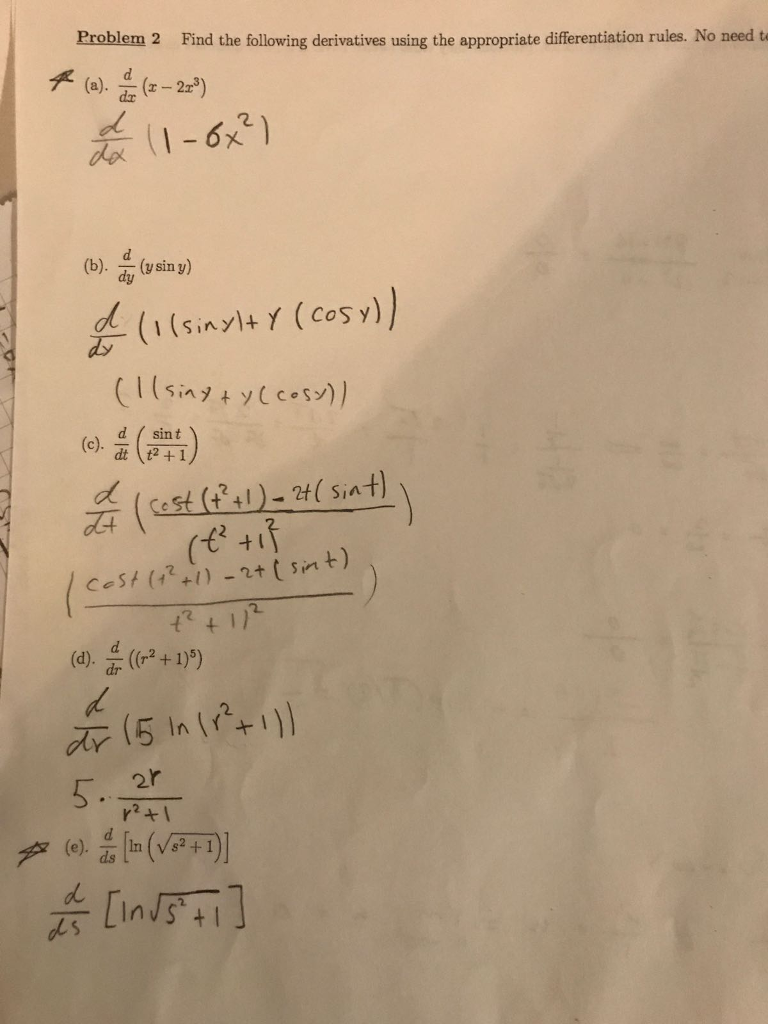 Problem 2 Find the following derivatives using the appropriate differentiation rules. No need t
(a). d/dx (x − 2x³)
d/dx (1 − 6x²)
(b). d/dy (y sin y)
d/dy (1(siny)+ y (cosy))
(1(siny + y(cosy))
(c). d/dt (sin t / t² + 1)
d/dt (cost (t²+1) − 2t(sint) / (t² +1)²)
(cost (t²+1) − 2t(sint) / t² + 1)²)
(d). d/dr ((r² + 1)⁵)
d/dr (5 ln(r²+1))
5 · 2r / r²+1
(e). d/ds [ln(√s² + 1)]
d/ds [ln√s² +1]